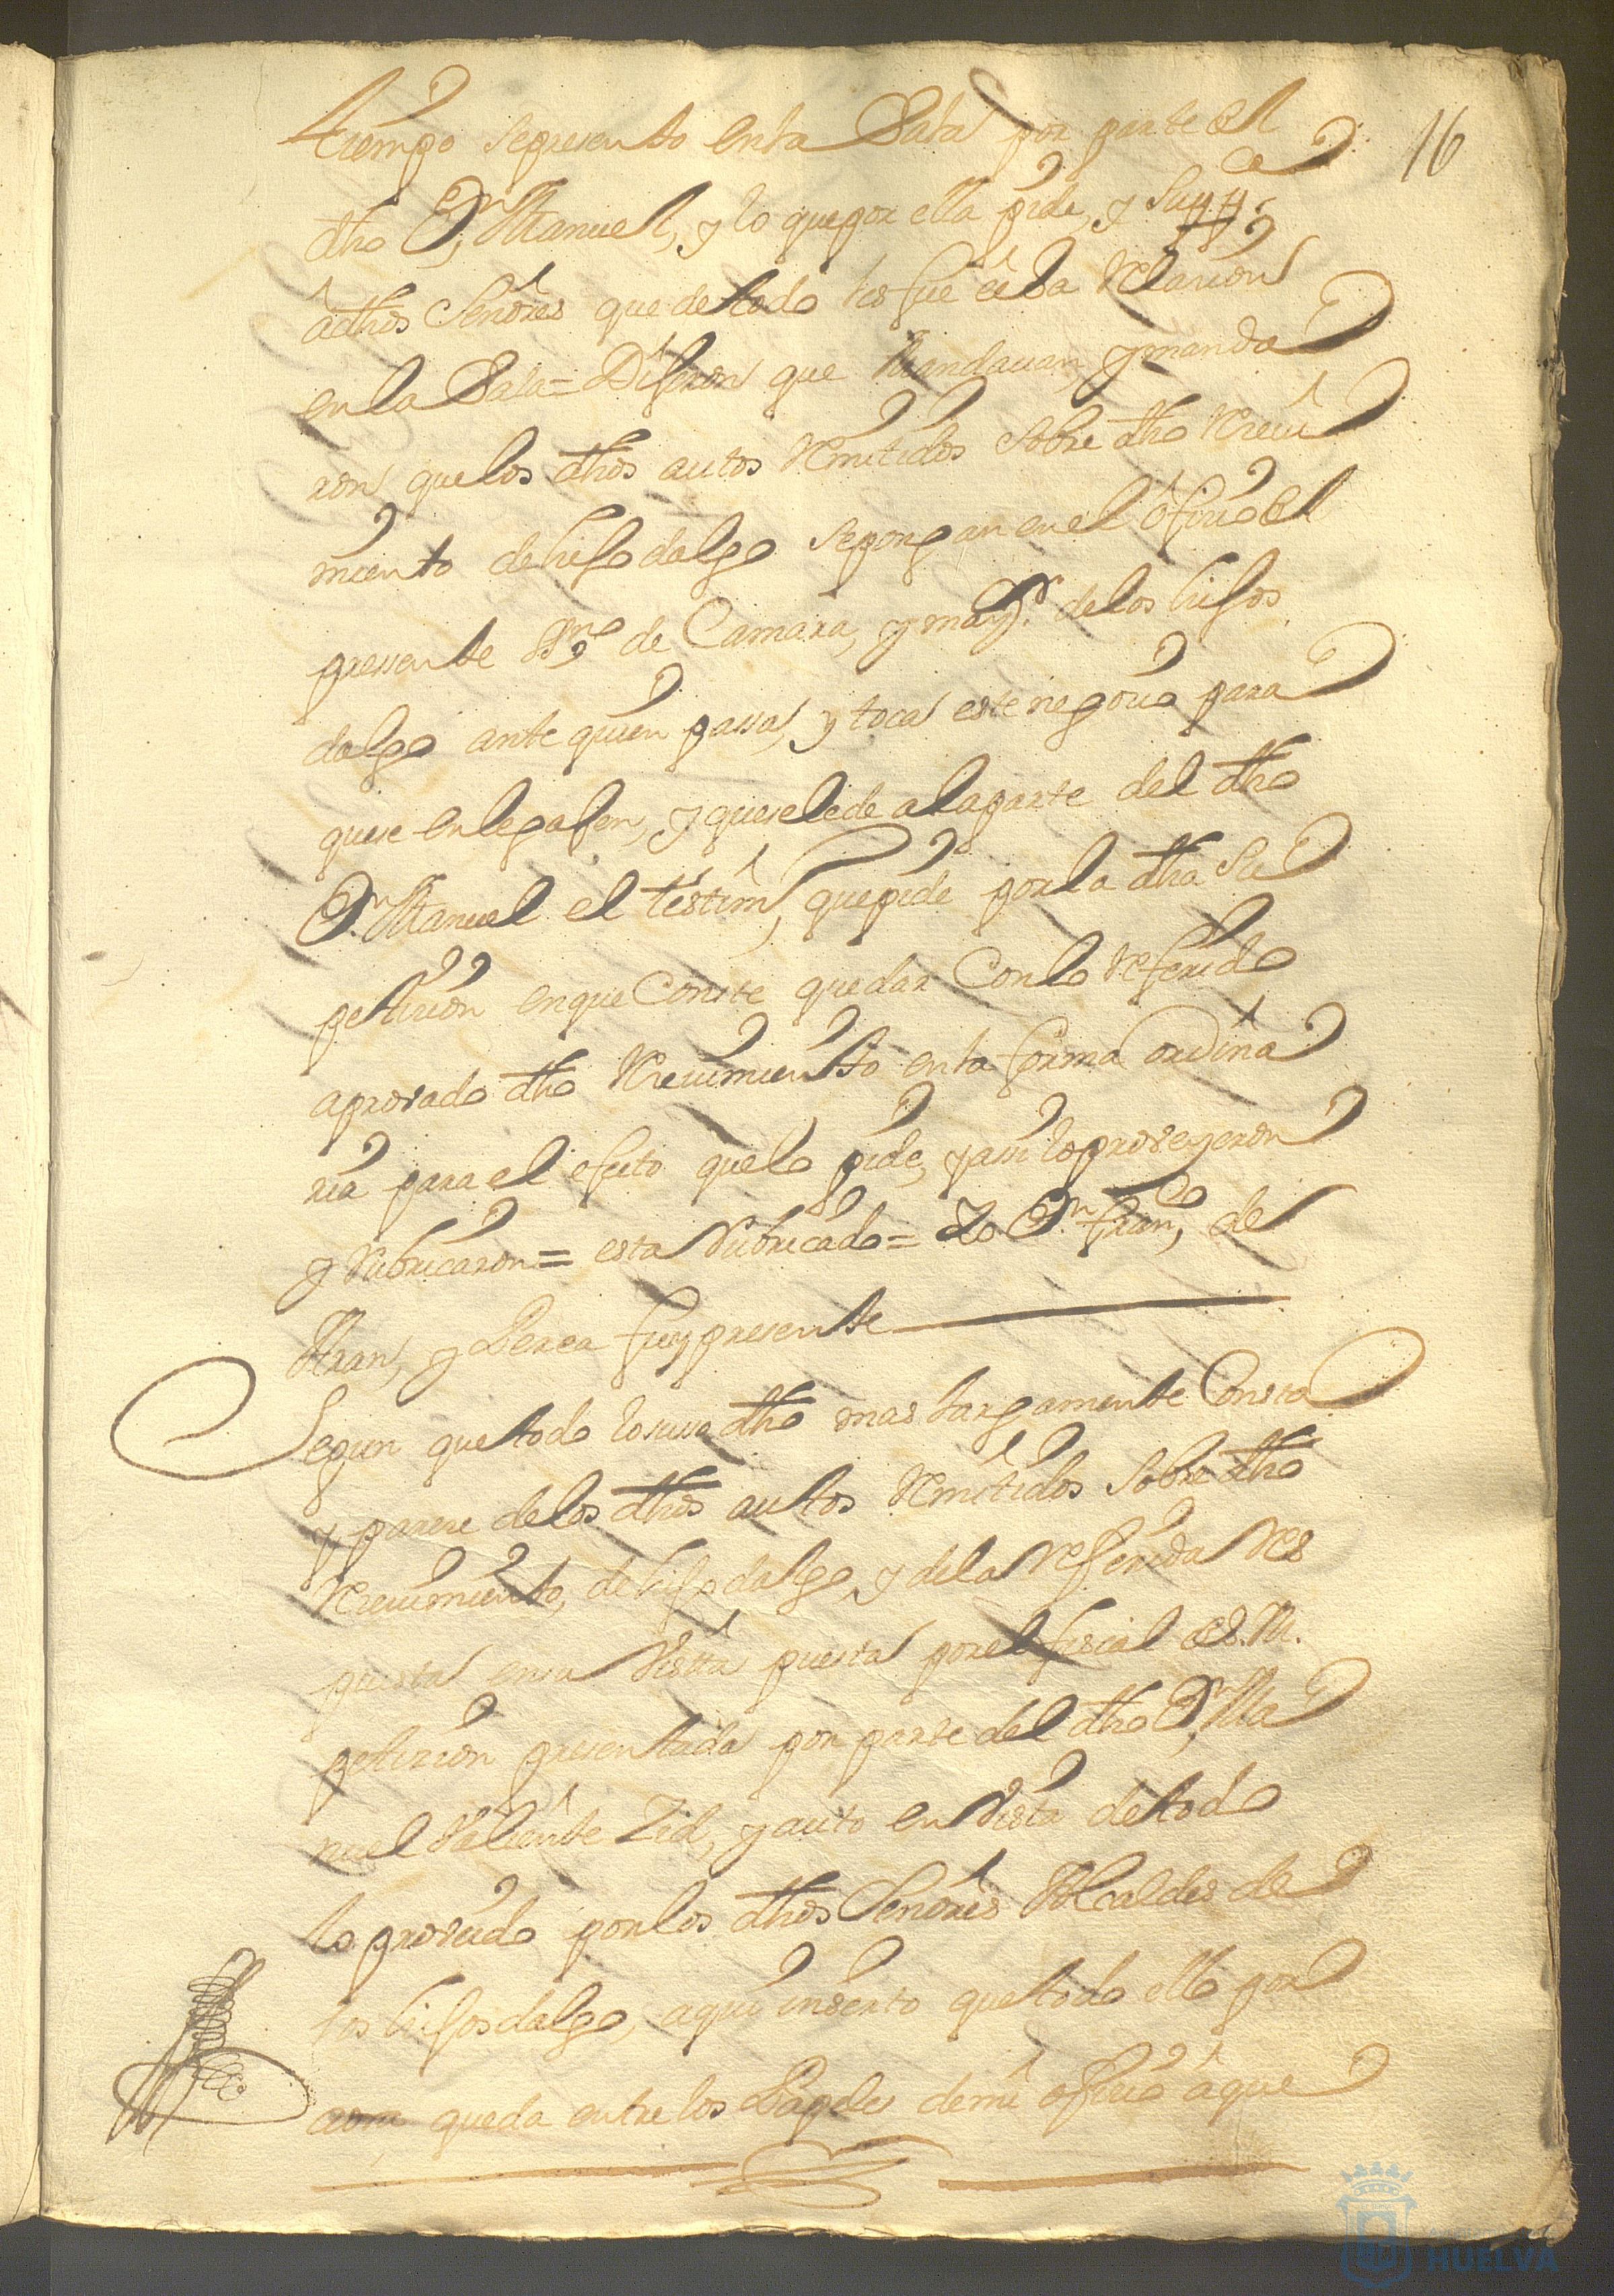 16
tiempo sepresento enla Sala por parte del
dho Dn Manuel, y lo que por ella pide, y Suppca
â dhos Señores que de todo les fue fecha Relazion
en la Sala = Dijeron que Mandauan, y manda
ron que los dhos autos Remitidos sobre dho Reciui
miento de hijo dalgo sepongan en el ôficio del
pressente Ssno de Camara, y mayr. de los hijos
dalgo ante quien passa, y toca este negocio para
quese enlegajen, y que sele de ala parte del dho
Dn Manuel el testimo, que pide por la dha su
peticion en que Conste quedar Con lo referido
aprovado dho Reciuimiento en la forma ordina
ria para el efecto que lo pide, y assi lo proveyeron
y Rubricaron = esta Rubricado = Yo Dn Franco, de
Aran, y Perea fuy presente
Segun que todo lo suso dho mas largamente Consta
y parece de los dhos autos Remitidos sobre dho
Reciuimiento, de hijo dalgo, y de la referida Res
puesta en su Vista puesta por el fiscal de S. M.
peticion presentada por parte del dho Dn Ma
nuel Valiente Zid, y auto en Vista de todo
lo proveido por los dhos Señores Alcaldes de
los hijos dalgo, aqui inserto que todo ello por
aora queda entre los Papeles de mi ofiçio â que
HUELVA